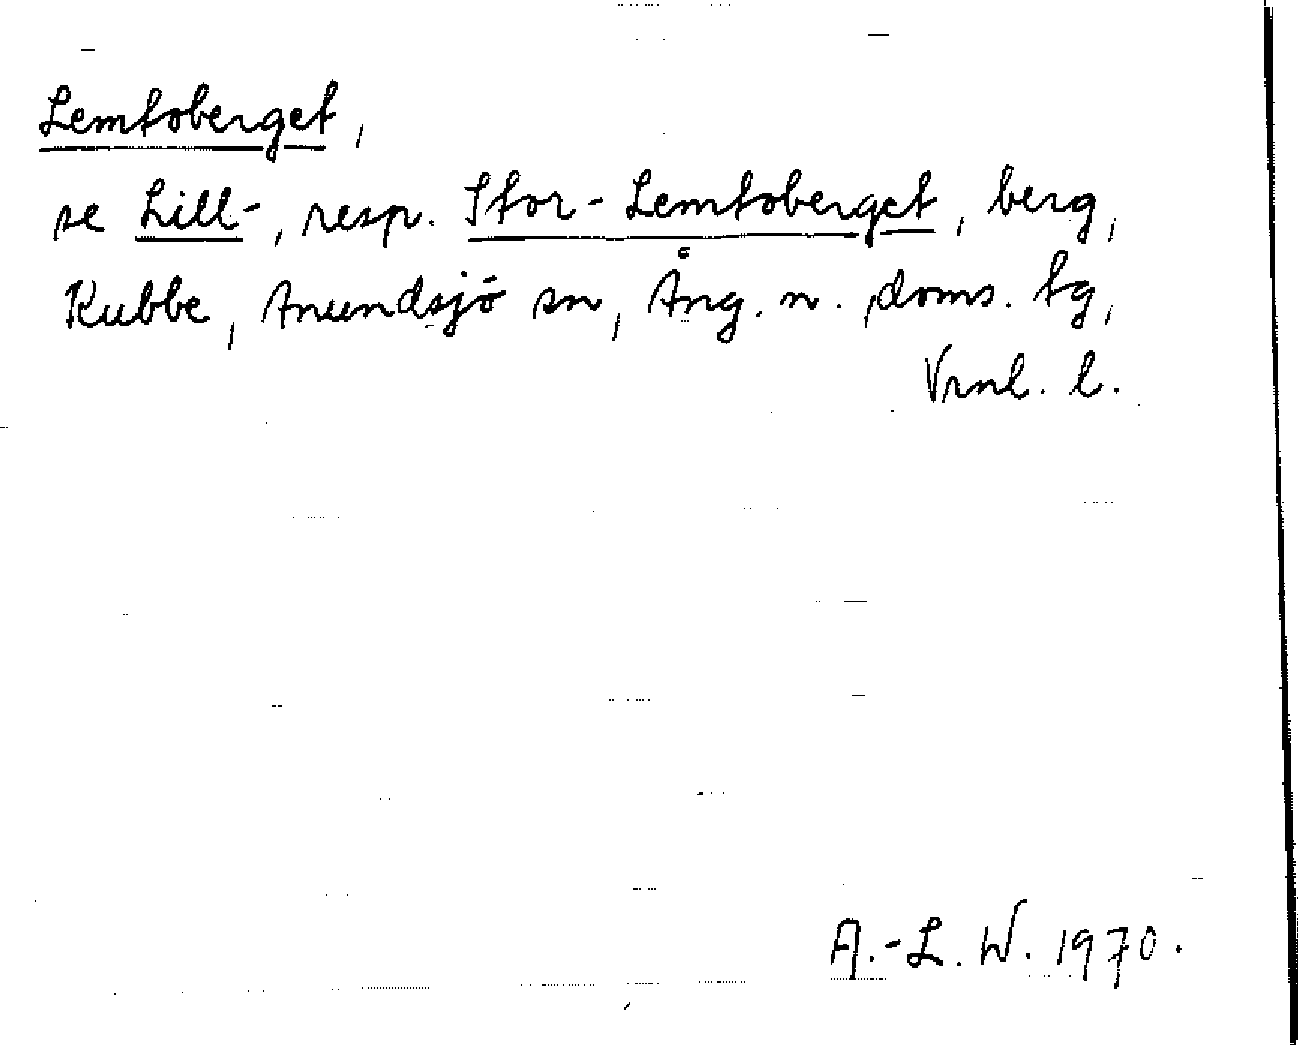 Lemtoberget,
se Lill-, resp. Stor-Lemtoberget, berg,
Kubbe, Anundsjö sn, Ång. n. doms. tg,
Vrnl. l.
A.-L. W. 1970.